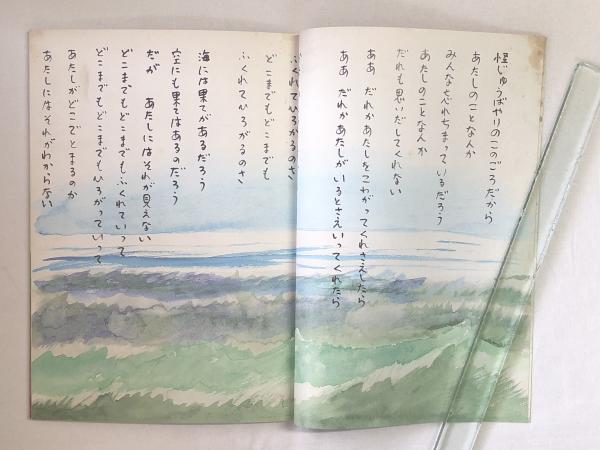 怪じゅうばやりのこのごろだから
あたしのことなんか
みんな忘れちまっているだろう
あたしのことなんか
だれも思いだしてくれない
ああ　だれかあたしをこわがってくれさえしたら
ああ　だれかあたしがいるとさえいってくれたら
ふくれてひろがるのさ
どこまでもどこまでも
ふくれてひろがるのさ
海には果てがあるだろう
空にも果てはあるのだろう
だが　あたしにはそれが見えない
どこまでもどこまでもふくれていって
どこまでもどこまでもひろがっていって
あたしがどこでとまるのか
あたしにはそれがわからない